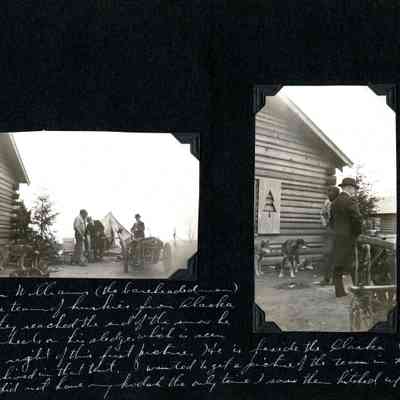 Williams (the bareheaded man)
team of huskies from Alaska
they reached the end of the snow he
wheels on his sledge which is seen
right of this first picture. He is beside the Alaska
lived in that tent. I wanted to get a picture of the team in
did not have my kodak the only time I saw them hitched up